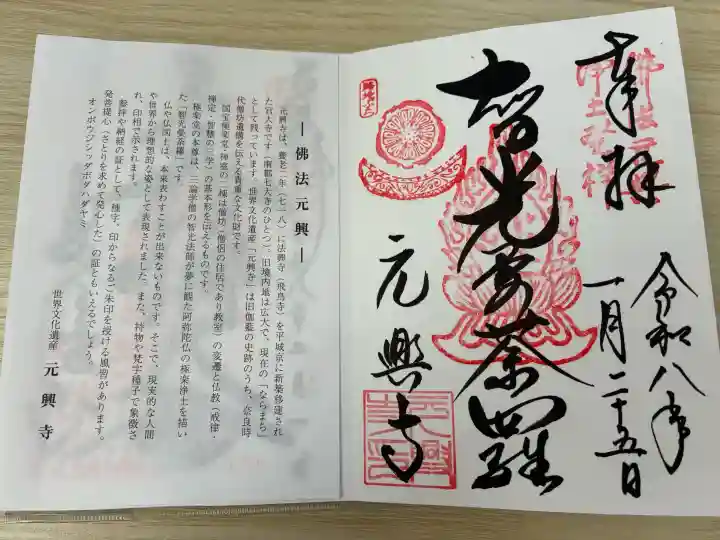 奉拝
令和八年
一月二十五日
智光曼荼羅
元興寺
―佛法元興―
元興寺は、養老二年(七一八)に法興寺(飛鳥寺)を平城京に新築移建され
た官大寺です(南都七大寺のひとつ)。旧境内地は広大で、現在の「ならまち」
として残っています。世界文化遺産「元興寺」は旧伽藍の史跡のうち、奈良時
代僧坊遺構を伝える貴重な文化財です。
国宝極楽堂・禅室の二棟は僧坊(僧侶の住居であり教室)の変遷と仏教(戒律・
禅定・智慧の三学)の基本形を伝えるものです。
極楽堂の本尊は、三論学僧の智光法師が夢に観た阿弥陀仏の極楽浄土を描い
た「智光曼荼羅」です。
仏や仏国土は、本来表わすことが出来ないものです。そこで、現実的な人間
や世界から理想的な姿として表現されました。また、持物や梵字種子で象徴さ
れ、印相で示されます。
参拝や納経の証として、種字、印からなるご朱印を授ける風習があります。
発菩提心(さとりを求めて発心した)の証ともいえるでしょう。
オンボウジシッダボダハダヤミ
世界文化遺産 元興寺